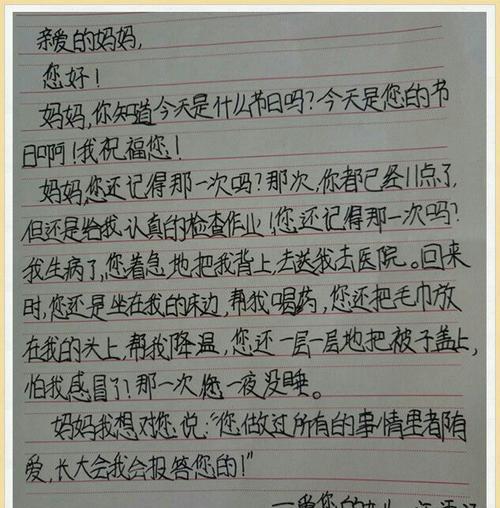 亲爱的妈妈,
您好!
妈妈,你知道今天是什么节日吗?今天是您的节
日啊!我祝福您!
妈妈,您还记得那一次吗?那次,你都已经11点了,
但还是给我认真的检查作业!您还记得那一次吗?
我生病了,您着急地把我背上,去送我去医院。回来
时,您还是坐在我的床边,帮我喝药,您还把毛巾放
在我的头上,帮我降温,您还一层一层地把被子盖上,
怕我感冒了!那一次您一夜没睡。
妈妈我想对您说:“您做过所有的事情里都有
爱,长大会我会报答您的!”
—爱您的